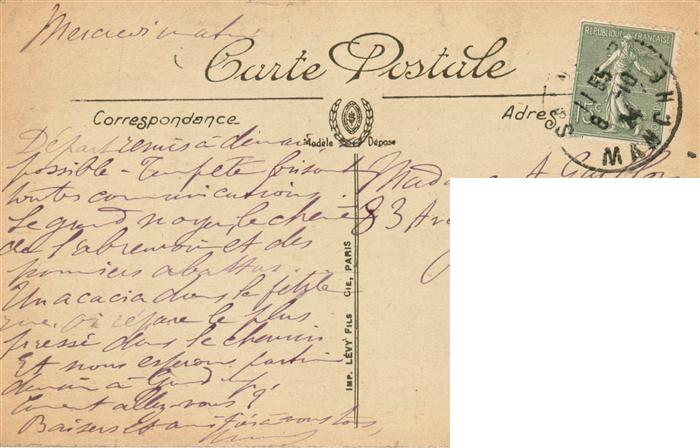 Mercredi matin
Carte Postale
Correspondance
Modèle Déposé
Adres
RÉPUBLIQUE FRANÇAISE
15c
MANCHE
Départ remis à demain
possible - Tempête brisant
toutes communications.
Le grand noyer, le chêne
de l'abreuvoir et des
pommiers abattus.
Un acacia dans la petite
rue. On répare le plus
pressé dans le chemin
Et nous espérons partir
demain à
Comment allez-vous ?
Baisers et amitiés à vous tous,
Madame A
83 Av
IMP. LÉVY FILS & CIE, PARIS